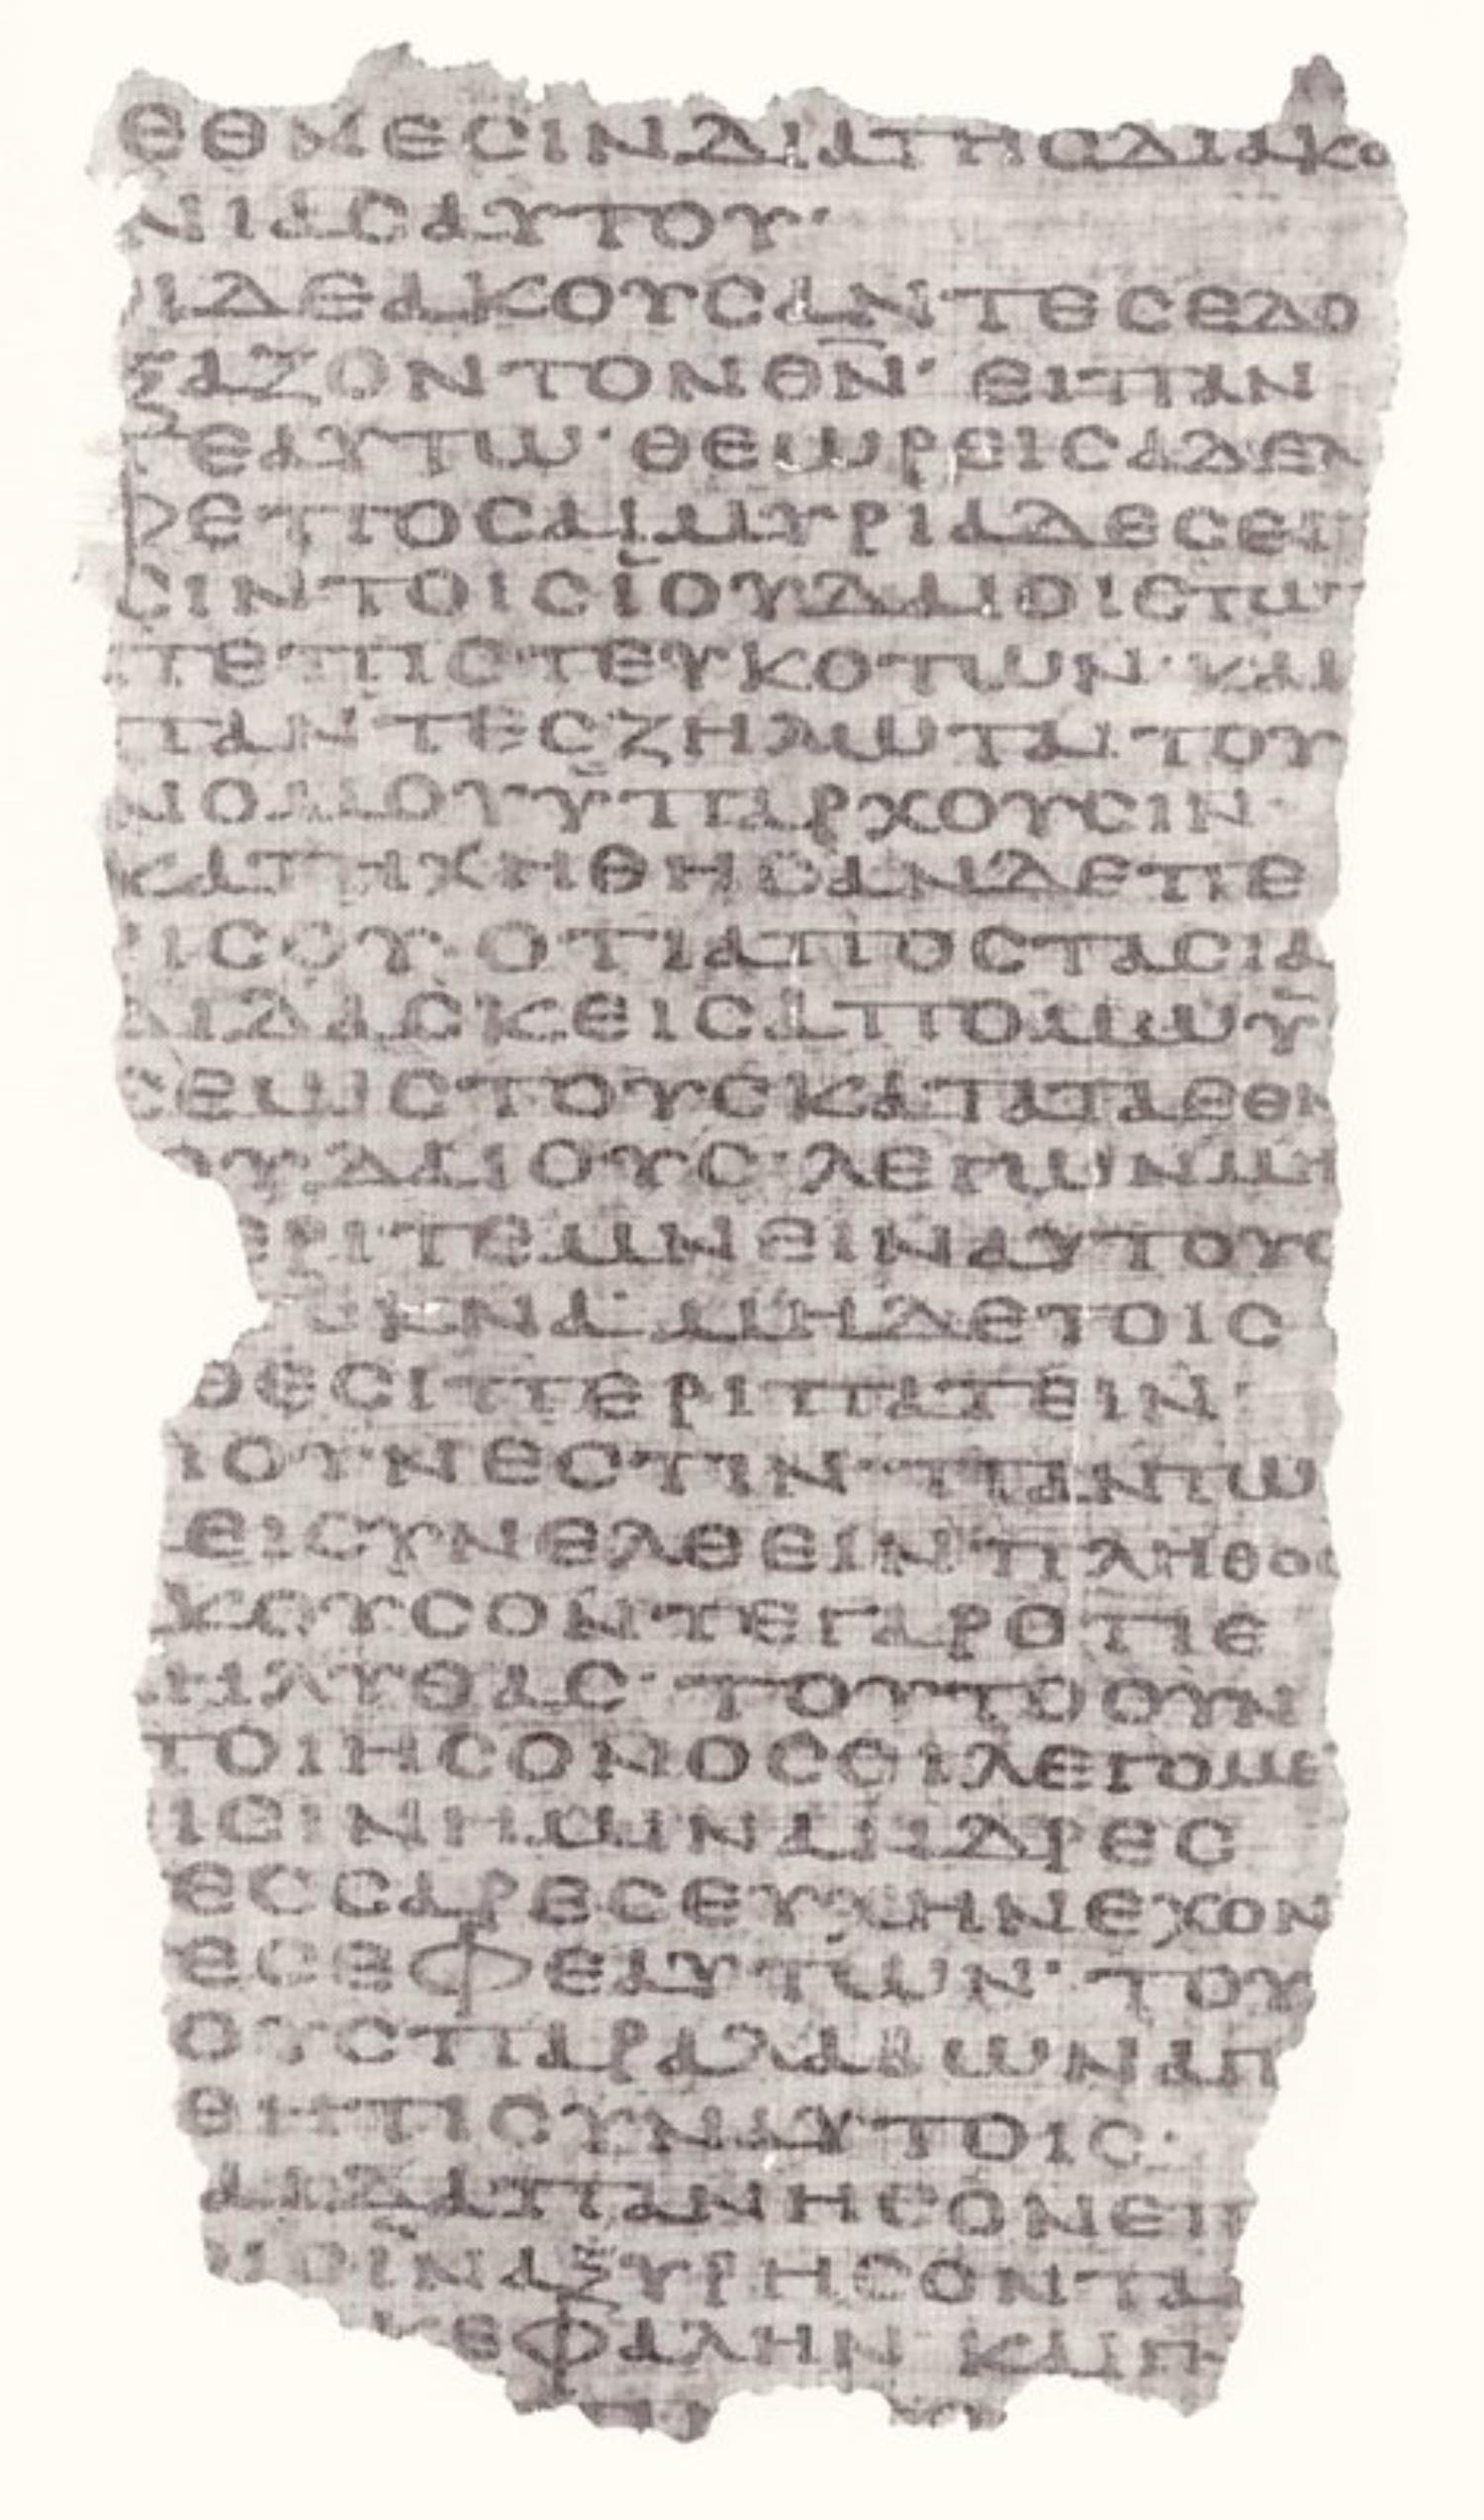 ΕΘΝΕCΙΝΔΙΑΤΗCΔΙΑΚΟ
ΝΙΑCΑΥΤΟΥ·
ΙΔΕΑΚΟΥCΑΝΤΕCΕΔΟ
ΞΑΖΟΝΤΟΝΘ̅Ν̅· ΕΙΠΑΝ
ΤΕΑΥΤΩ·ΘΕΩΡΕΙCΑΔΕΛ
ΦΕΠΟCΑΙΜΥΡΙΑΔΕCΕΙ
CΙΝΤΟΙCΪΟΥΔΑΙΟΙCΤΩ
ΠΕΠΙCΤΕΥΚΟΤΩΝ·ΚΑΙ
ΠΑΝΤΕCΖΗΛΩΤΑΙΤΟΥ
ΝΟΜΟΥΫΠΑΡΧΟΥCΙΝ·
ΚΑΤΗΧΗΘΗCΑΝΔΕΠΕ
ΡΙCΟΥ·ΟΤΙΑΠΟCΤΑCΙΑ
ΔΙΔΑCΚΕΙCΑΠΟΜΩΫ
CΕΩCΤΟΥCΚΑΤΑΤΑΕΘΝ
ΟΥΔΑΙΟΥC·ΛΕΓΩΝΜΗ
ΕΡΙΤΕΜΝΕΙΝΑΥΤΟΥC
ΕΚΝΑ·ΜΗΔΕΤΟΙC
ΘΕCΙΠΕΡΙΠΑΤΕΙΝ·
ΙΟΥΝΕCΤΙΝ·ΠΑΝΤΩ
ΕΙCΥΝΕΛΘΕΙΝΠΛΗΘΟC
ΚΟΥCΟΝΤΕΓΑΡΟΤΙΕ
ΗΛΥΘΑC·ΤΟΥΤΟΟΥΝ
ΠΟΙΗCΟΝΟCΟΙΛΕΓΟΜΕ
ΙCΙΝΗΜΙΝΑΝΔΡΕC
ΕCCΑΡΕCΕΥΧΗΝΕΧΟΝ
ΕCΕΦΕΑΥΤΩΝ·ΤΟΥ
ΟΥCΠΑΡΑΛΑΒΩΝΑΠ
ΘΗΤΙCΥΝΑΥΤΟΙC·
ΑΙΔΑΠΑΝΗCΟΝΕΠ
ΟΙΝΑΞΥΡΗCΟΝΤΑ
ΚΕΦΑΛΗΝ ΚΑΙΠ